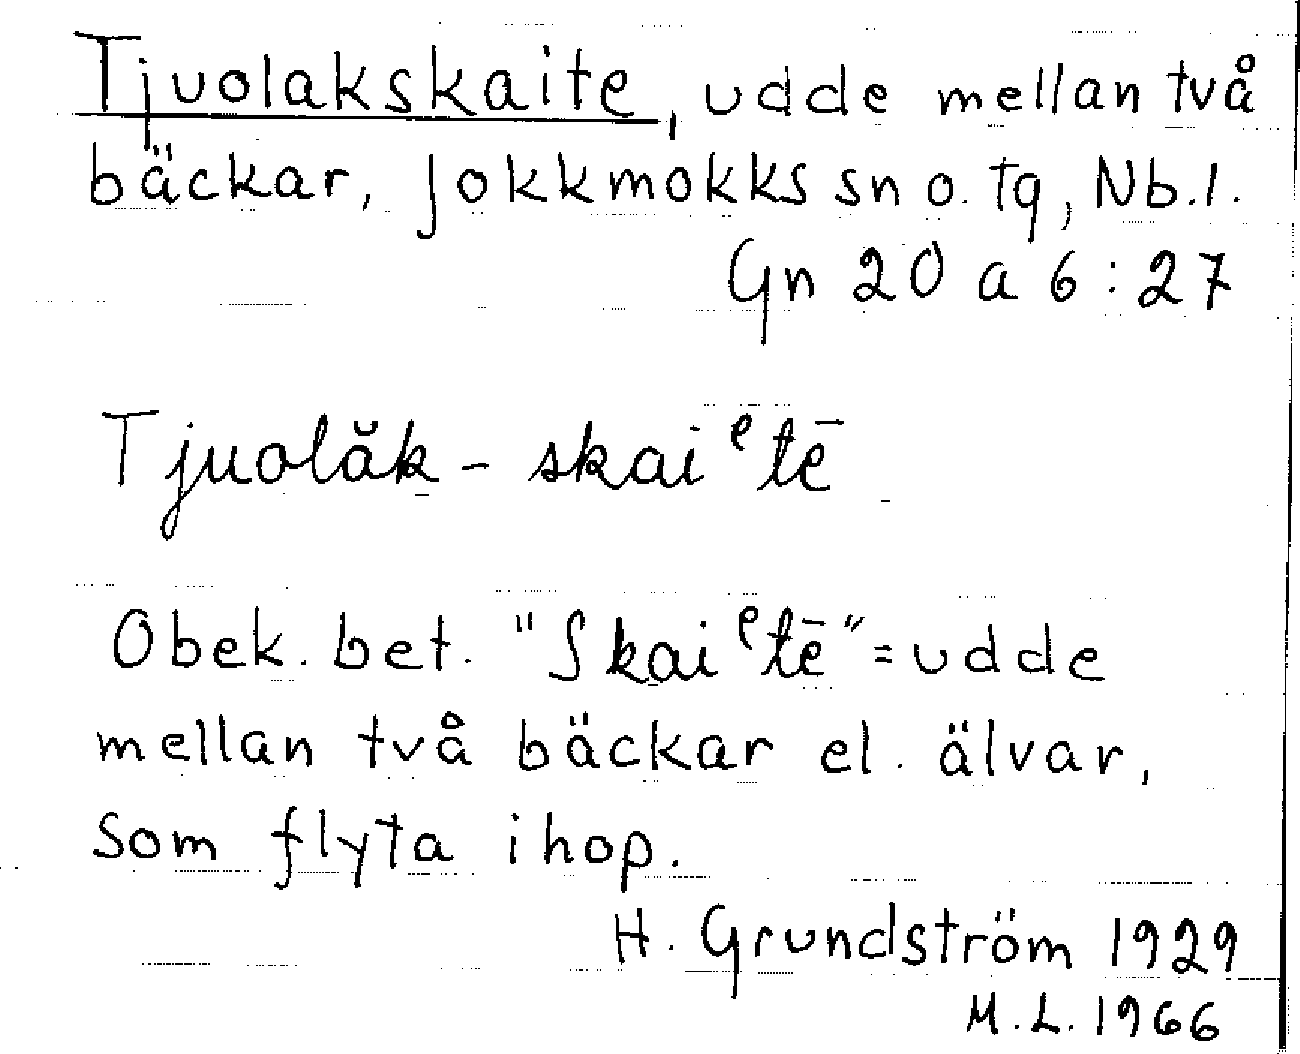 Tjuolakskaite, udde mellan två
bäckar, Jokkmokks sn o. tg, Nb.l.
Gn 20 a 6:27
Tjuolăk - skaiᵉtē
Obek. bet. "Skaiᵉtē" = udde
mellan två bäckar el. älvar,
som flyta ihop.
H. Grundström 1929
M.L. 1966